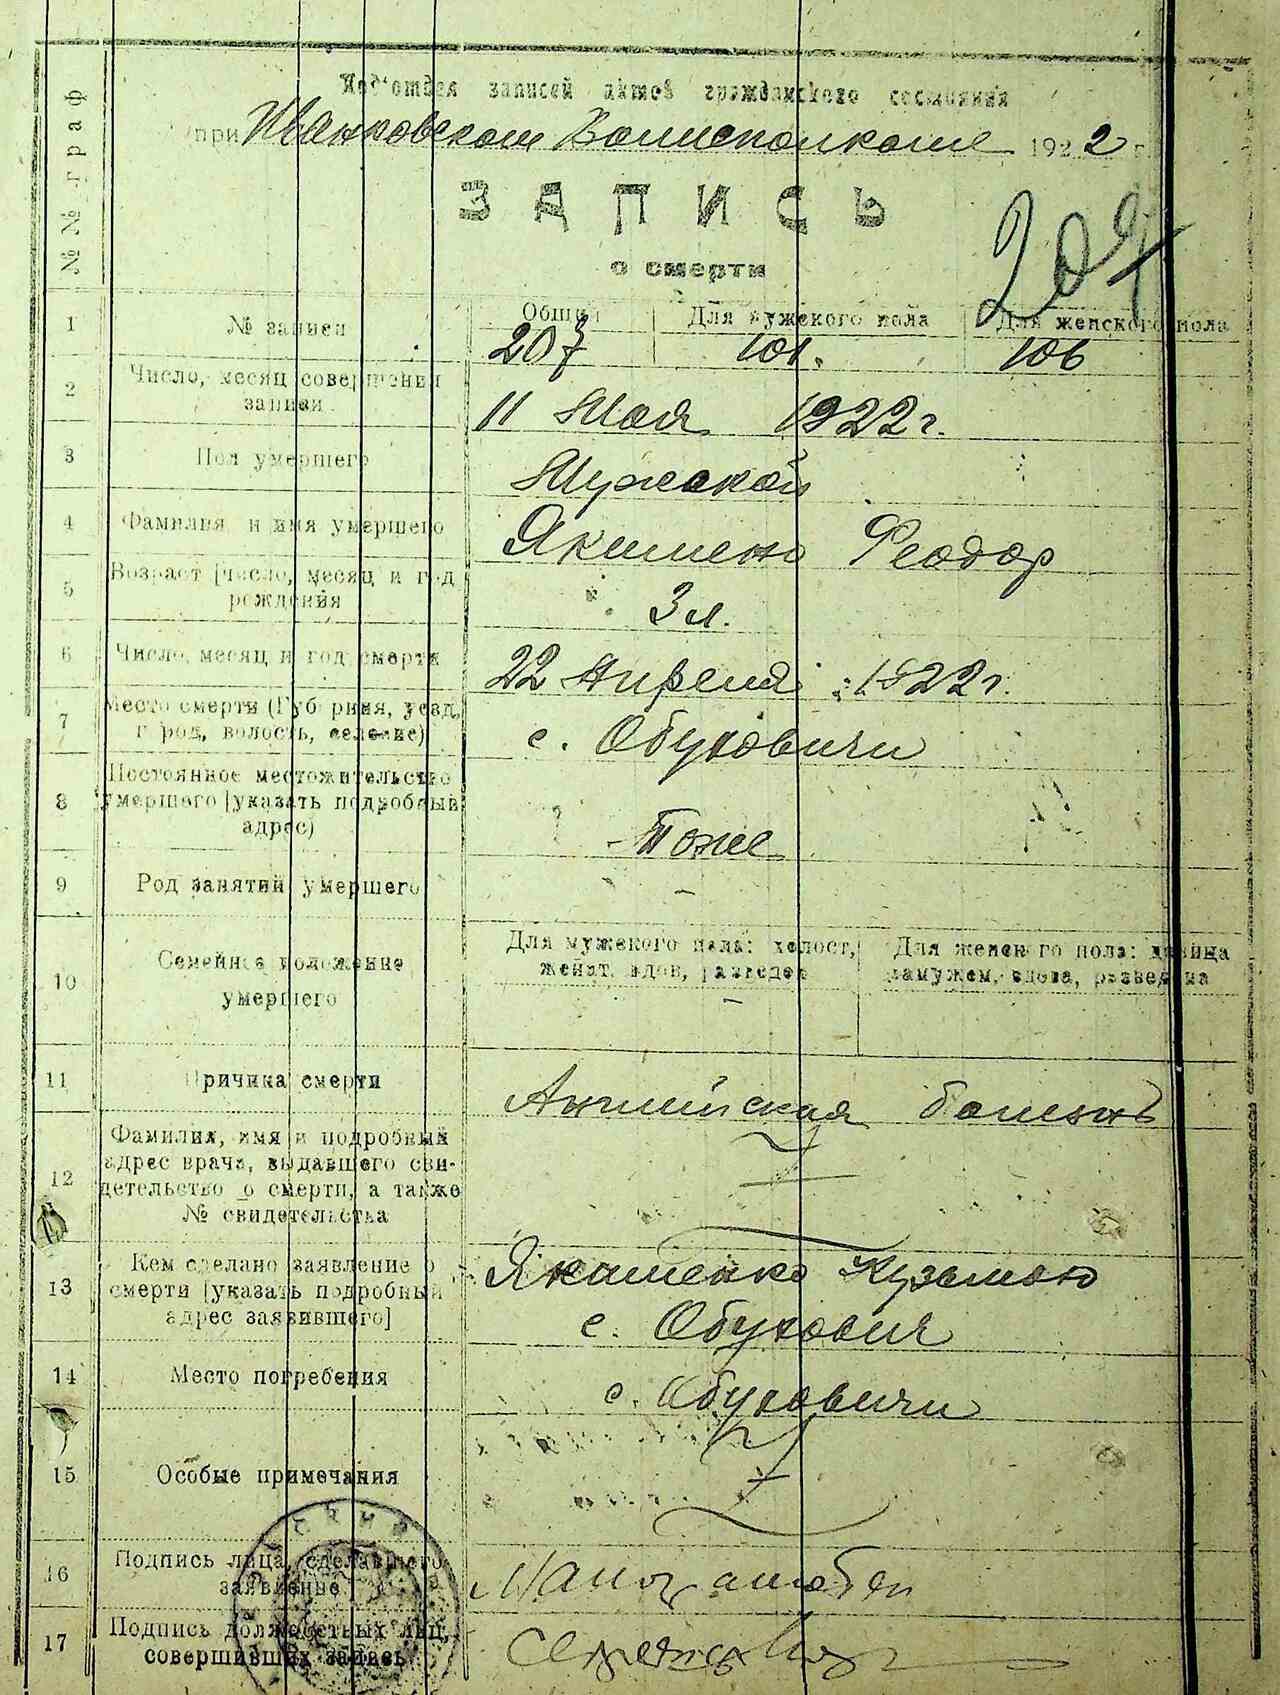 Под'отдел записей актов гражданского состояния
при Иванковском Волисполкоме 1922 г.
№№ граф
ЗАПИСЬ
о смерти
204
1 № записи
Общий Для мужского пола Для женского пола
207 101. 106
2 Число, месяц совершения записи
11 Мая 1922 г.
3 Пол умершего
Мужской
4 Фамилия и имя умершего
Якименко Феодор
5 Возраст [число, месяц и год
рождения
3 л.
6 Число, месяц и год смерти
22 Апреля 1922 г.
7 Место смерти (Губерния, уезд,
город, волость, селение)
с. Обуховичи
8 Постоянное местожительство
умершего [указать подробный
адрес)
Тоже
9 Род занятий умершего
-
10 Семейное положение
умершего
Для мужского пола: холост,
женат, вдов, разведен
Для женского пола: девица
замужем, вдова, разведена
-
11 Причина смерти
Английская болезнь
12 Фамилия, имя и подробный
адрес врача, выдавшего сви-
детельство о смерти, а также
№ свидетельства
13 Кем сделано заявление о
смерти [указать подробный
адрес заявившего]
Якименко Кузьмою
с. Обухович
14 Место погребения
с. Обуховичи
15 Особые примечания
16 Подпись лица, сделавшего
заявление
17 Подпись должностных лиц,
совершивших запись